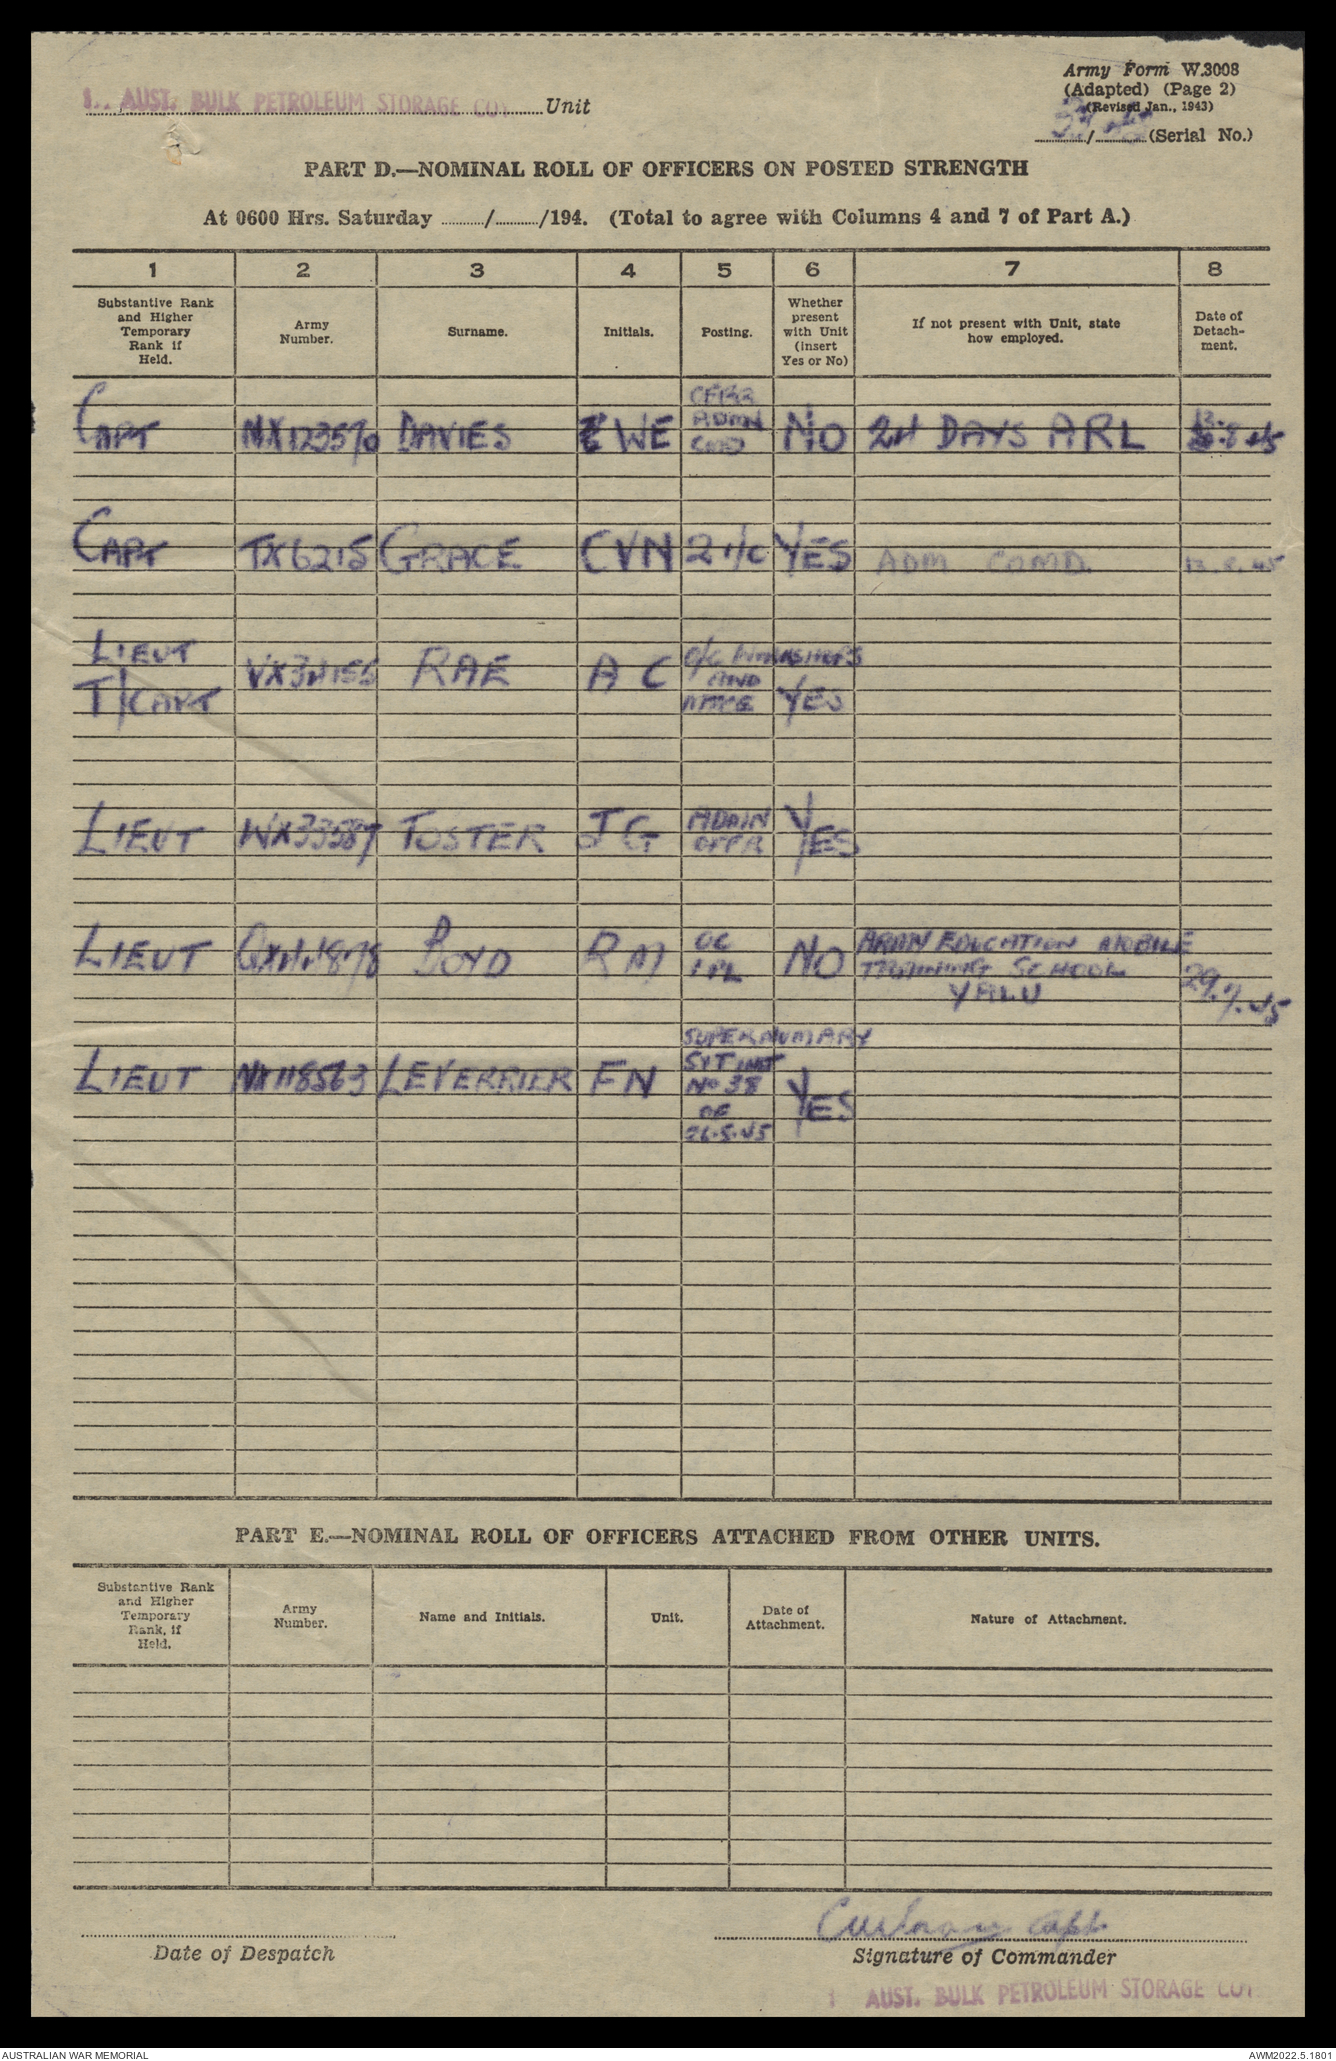 1. AUST. BULK PETROLEUM STORAGE COY Unit
Army Form W.3008
(Adapted) (Page 2)
(Revised Jan., 1943)
/ (Serial No.)
PART D.—NOMINAL ROLL OF OFFICERS ON POSTED STRENGTH
At 0600 Hrs. Saturday ........../........../194. (Total to agree with Columns 4 and 7 of Part A.)
1 2 3 4 5 6 7 8
Substantive Rank and Higher Temporary Rank if Held.
Army Number.
Surname.
Initials.
Posting.
Whether present with Unit (insert Yes or No)
If not present with Unit, state how employed.
Date of Detachment.
CAPT NX123570 DAVIES WE ADMN COMD NO 24 DAYS ARL 8 45
CAPT TX6215 GRACE CVN 2 I/C YES ADM COMD. 45
LIEUT T/CAPT VX34155 RAE A C O/C WORKSHOPS AND YES
LIEUT WX33587 TOSTER J G ADMIN OFFR YES
LIEUT BOYD R M OC NO ARMY EDUCATION MOBILE TRAINING SCHOOL YALU 29.7.45
LIEUT NX118563 LEVERRIER F N SUPERNUMARY No 38 OF 26.5.45 YES
PART E.—NOMINAL ROLL OF OFFICERS ATTACHED FROM OTHER UNITS.
Substantive Rank and Higher Temporary Rank, if Held.
Army Number.
Name and Initials.
Unit.
Date of Attachment.
Nature of Attachment.
Capt.
Date of Despatch
Signature of Commander
1 AUST. BULK PETROLEUM STORAGE COY
AUSTRALIAN WAR MEMORIAL
AWM2022.5.1801